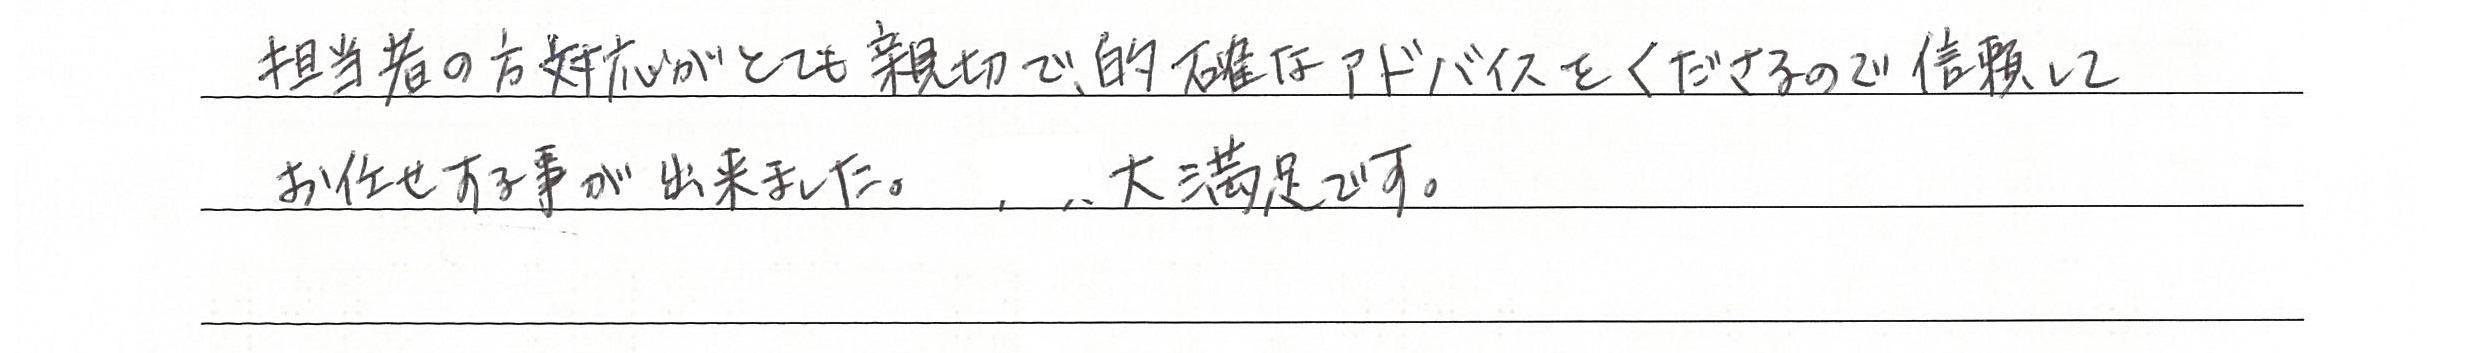 担当者の方対応がとても親切で、的確なアドバイスをくださるので信頼して
お任せする事が出来ました。 大満足です。